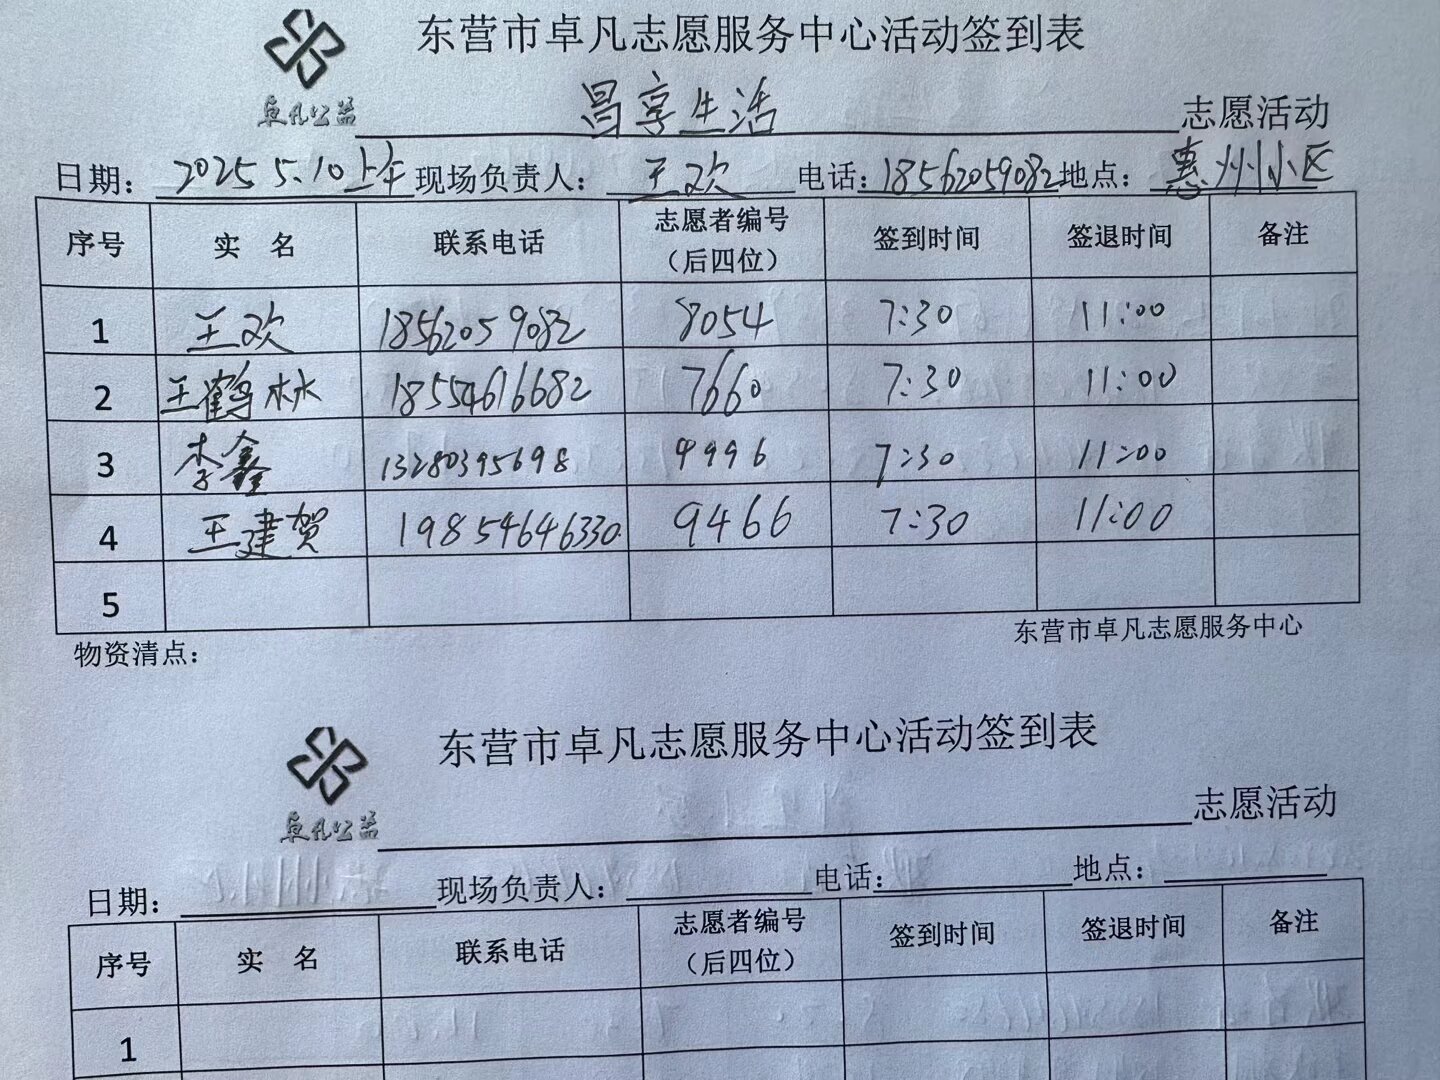 东营市卓凡志愿服务中心活动签到表
卓凡公益
昌享生活 志愿活动
日期：2025.5.10上午 现场负责人：王欢 电话：18562059082 地点：惠州小区
序号 实 名 联系电话 志愿者编号（后四位） 签到时间 签退时间 备注
1 王欢 18562059082 8054 7:30 11:00
2 王鹤林 18554616682 7660 7:30 11:00
3 李鑫 13280395698 9996 7:30 11:00
4 王建贺 19854646330 9466 7:30 11:00
5
物资清点： 东营市卓凡志愿服务中心
东营市卓凡志愿服务中心活动签到表
卓凡公益
志愿活动
日期： 现场负责人： 电话： 地点：
序号 实 名 联系电话 志愿者编号（后四位） 签到时间 签退时间 备注
1